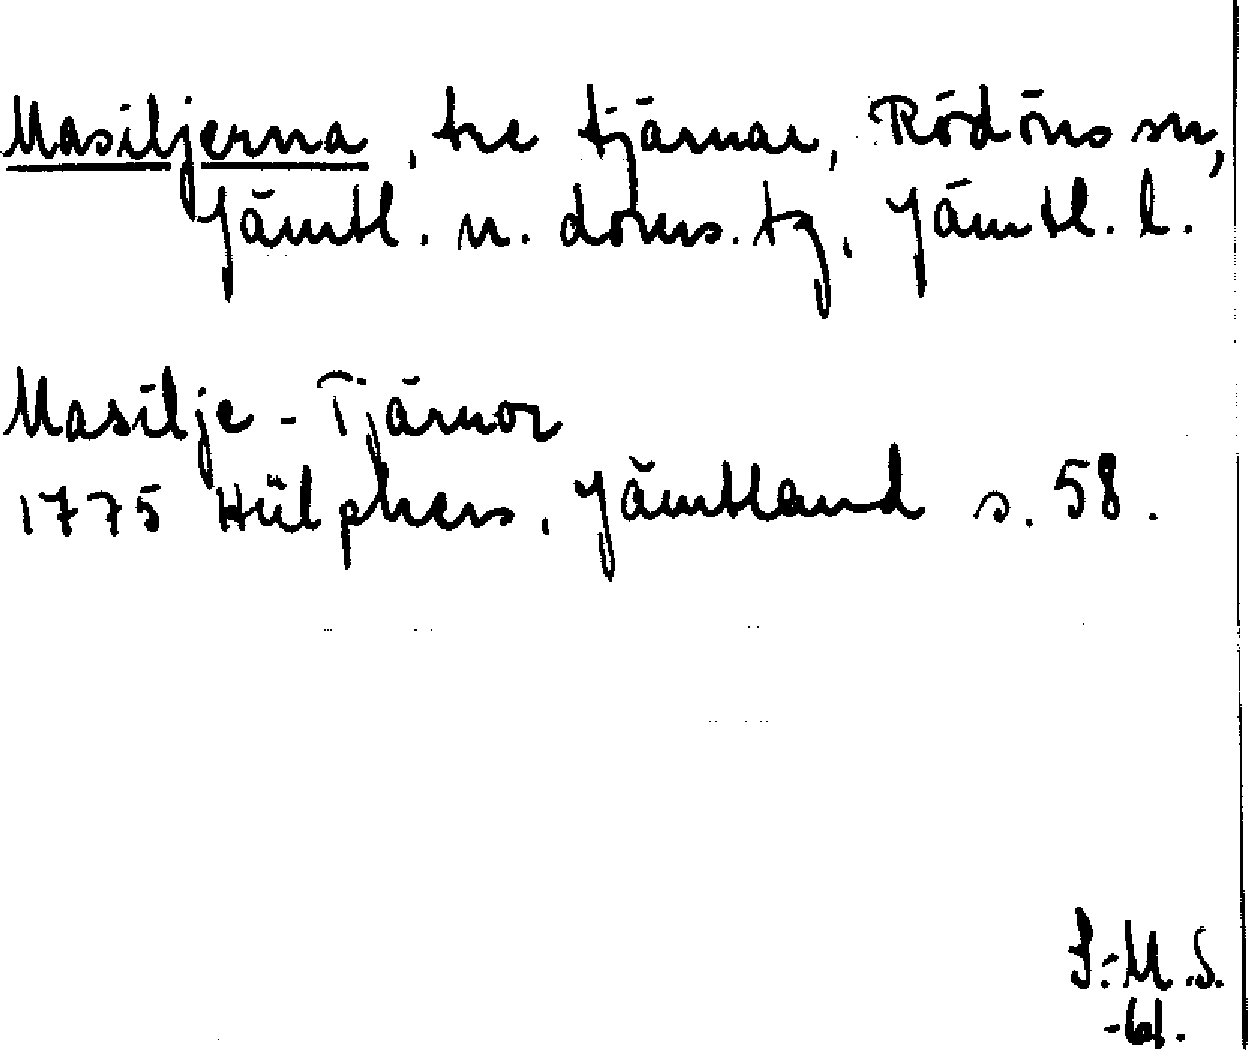 Masiljerna, tre tjärnar, Rödöns sn,
Jämtl. n. doms. tg, Jämtl. l.
Masilje-Tjärnor
1775 Hülphers, Jämtland s. 58.
P.-M. S.
-61.